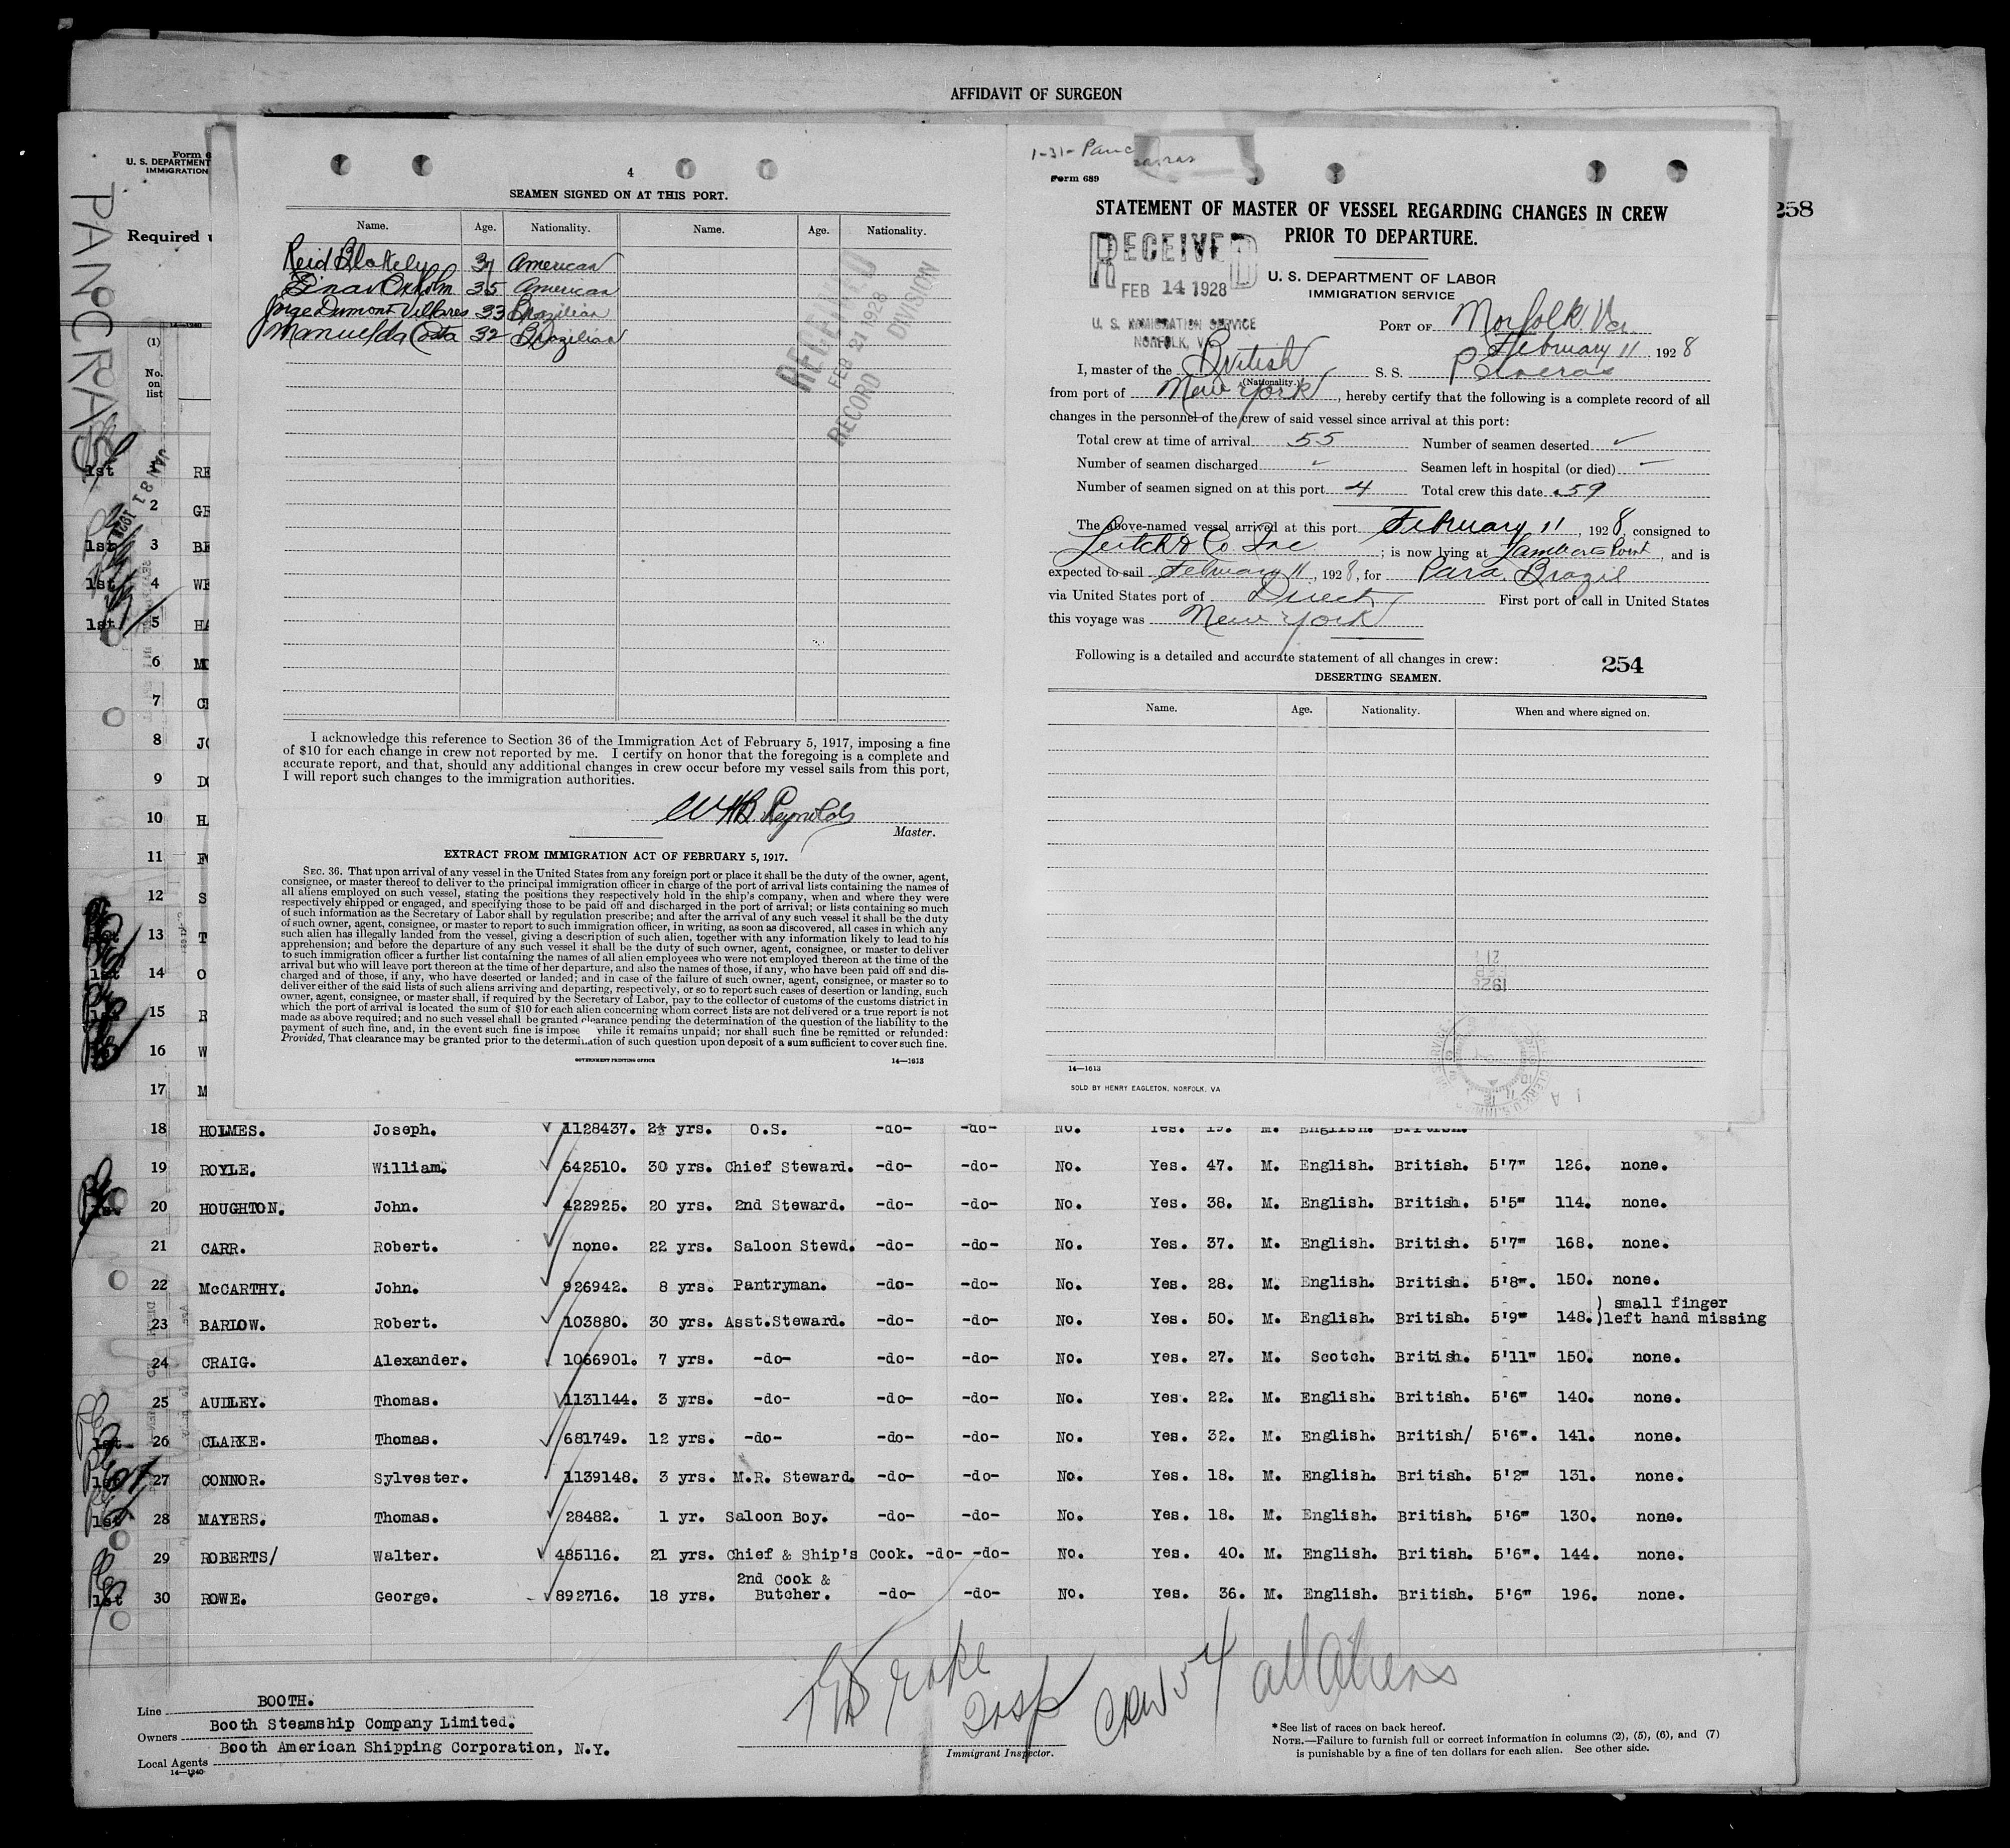 AFFIDAVIT OF SURGEON
258
PANCRAS
Form 6
U. S. DEPARTMENT
IMMIGRATION
Required
14—1240
(1)
No.
on
list
1st RE
2 GE
1st 3
1st 4
1st 5 HA
6
7
8
9
10
11
12 S
13 T
1st 14 O
15
16 W
17 M
JAN 31 1928
4
SEAMEN SIGNED ON AT THIS PORT.
Name. Age. Nationality. Name. Age. Nationality.
Reid Blakely 37 American
Einar Oxholm 35 American
Jorge Dumont Villares 33 Brazilian
Manuel da Costa 32 Brazilian
RECEIVED
FEB 21 1928
RECORD DIVISION
I acknowledge this reference to Section 36 of the Immigration Act of February 5, 1917, imposing a fine
of $10 for each change in crew not reported by me. I certify on honor that the foregoing is a complete and
accurate report, and that, should any additional changes in crew occur before my vessel sails from this port,
I will report such changes to the immigration authorities.
WHB Reynolds
Master.
EXTRACT FROM IMMIGRATION ACT OF FEBRUARY 5, 1917.
SEC. 36. That upon arrival of any vessel in the United States from any foreign port or place it shall be the duty of the owner, agent,
consignee, or master thereof to deliver to the principal immigration officer in charge of the port of arrival lists containing the names of
all aliens employed on such vessel, stating the positions they respectively hold in the ship's company, when and where they were
respectively shipped or engaged, and specifying those to be paid off and discharged in the port of arrival; or lists containing so much
of such information as the Secretary of Labor shall by regulation prescribe; and after the arrival of any such vessel it shall be the duty
of such owner, agent, consignee, or master to report to such immigration officer, in writing, as soon as discovered, all cases in which any
such alien has illegally landed from the vessel, giving a description of such alien, together with any information likely to lead to his
apprehension; and before the departure of any such vessel it shall be the duty of such owner, agent, consignee, or master to deliver
to such immigration officer a further list containing the names of all alien employees who were not employed thereon at the time of the
arrival but who will leave port thereon at the time of her departure, and also the names of those, if any, who have been paid off and dis-
charged and of those, if any, who have deserted or landed; and in case of the failure of such owner, agent, consignee, or master so to
deliver either of the said lists of such aliens arriving and departing, respectively, or so to report such cases of desertion or landing, such
owner, agent, consignee, or master shall, if required by the Secretary of Labor, pay to the collector of customs of the customs district in
which the port of arrival is located the sum of $10 for each alien concerning whom correct lists are not delivered or a true report is not
made as above required; and no such vessel shall be granted clearance pending the determination of the question of the liability to the
payment of such fine, and, in the event such fine is impose while it remains unpaid; nor shall such fine be remitted or refunded:
Provided, That clearance may be granted prior to the determination of such question upon deposit of a sum sufficient to cover such fine.
GOVERNMENT PRINTING OFFICE 14—1613
1-31-Panc
Form 689
STATEMENT OF MASTER OF VESSEL REGARDING CHANGES IN CREW
PRIOR TO DEPARTURE.
RECEIVED
FEB 14 1928
U. S. IMMIGRATION SERVICE
NORFOLK, VA
U. S. DEPARTMENT OF LABOR
IMMIGRATION SERVICE
PORT OF Norfolk Va.
February 11, 1928
I, master of the British S. S. Pancras
(Nationality.)
from port of New York, hereby certify that the following is a complete record of all
changes in the personnel of the crew of said vessel since arrival at this port:
Total crew at time of arrival 55 Number of seamen deserted ✓
Number of seamen discharged ✓ Seamen left in hospital (or died) ✓
Number of seamen signed on at this port 4 Total crew this date 59
The above-named vessel arrived at this port February 11, 1928, consigned to
Leitch & Co. Inc ; is now lying at Lamberts Point, and is
expected to sail February 11, 1928, for Para, Brazil
via United States port of Direct First port of call in United States
this voyage was New York
Following is a detailed and accurate statement of all changes in crew:
254
DESERTING SEAMEN.
Name. Age. Nationality. When and where signed on.
14—1613
SOLD BY HENRY EAGLETON, NORFOLK, VA
18 HOLMES. Joseph. 1128437. 2½ yrs. O.S. -do- -do- No. Yes. 19. M. English. British.
19 ROYLE. William. 642510. 30 yrs. Chief Steward. -do- -do- No. Yes. 47. M. English. British. 5'7" 126. none.
20 HOUGHTON. John. 422925. 20 yrs. 2nd Steward. -do- -do- No. Yes. 38. M. English. British. 5'5" 114. none.
21 CARR. Robert. none. 22 yrs. Saloon Stewd. -do- -do- No. Yes. 37. M. English. British. 5'7" 168. none.
22 McCARTHY. John. 926942. 8 yrs. Pantryman. -do- -do- No. Yes. 28. M. English. British. 5'8". 150. none.
23 BARLOW. Robert. 103880. 30 yrs. Asst.Steward. -do- -do- No. Yes. 50. M. English. British. 5'9" 148. ) small finger
)left hand missing
24 CRAIG. Alexander. 1066901. 7 yrs. -do- -do- -do- No. Yes. 27. M. Scotch. British. 5'11" 150. none.
25 AUDLEY. Thomas. 1131144. 3 yrs. -do- -do- -do- No. Yes. 22. M. English. British. 5'6" 140. none.
1st 26 CLARKE. Thomas. 681749. 12 yrs. -do- -do- -do- No. Yes. 32. M. English. British/ 5'6". 141. none.
1st 27 CONNOR. Sylvester. 1139148. 3 yrs. M.R. Steward. -do- -do- No. Yes. 18. M. English. British. 5'2" 131. none.
1st 28 MAYERS. Thomas. 28482. 1 yr. Saloon Boy. -do- -do- No. Yes. 18. M. English. British. 5'6" 130. none.
29 ROBERTS/ Walter. 485116. 21 yrs. Chief & Ship's Cook. -do- -do- No. Yes. 40. M. English. British. 5'6". 144. none.
1st 30 ROWE. George. 892716. 18 yrs. 2nd Cook &
Butcher. -do- -do- No. Yes. 36. M. English. British. 5'6" 196. none.
Crew 54 all Aliens
Line BOOTH.
Owners Booth Steamship Company Limited.
Local Agents Booth American Shipping Corporation, N.Y.
14—1240
Immigrant Inspector.
* See list of races on back hereof.
NOTE.—Failure to furnish full or correct information in columns (2), (5), (6), and (7)
is punishable by a fine of ten dollars for each alien. See other side.